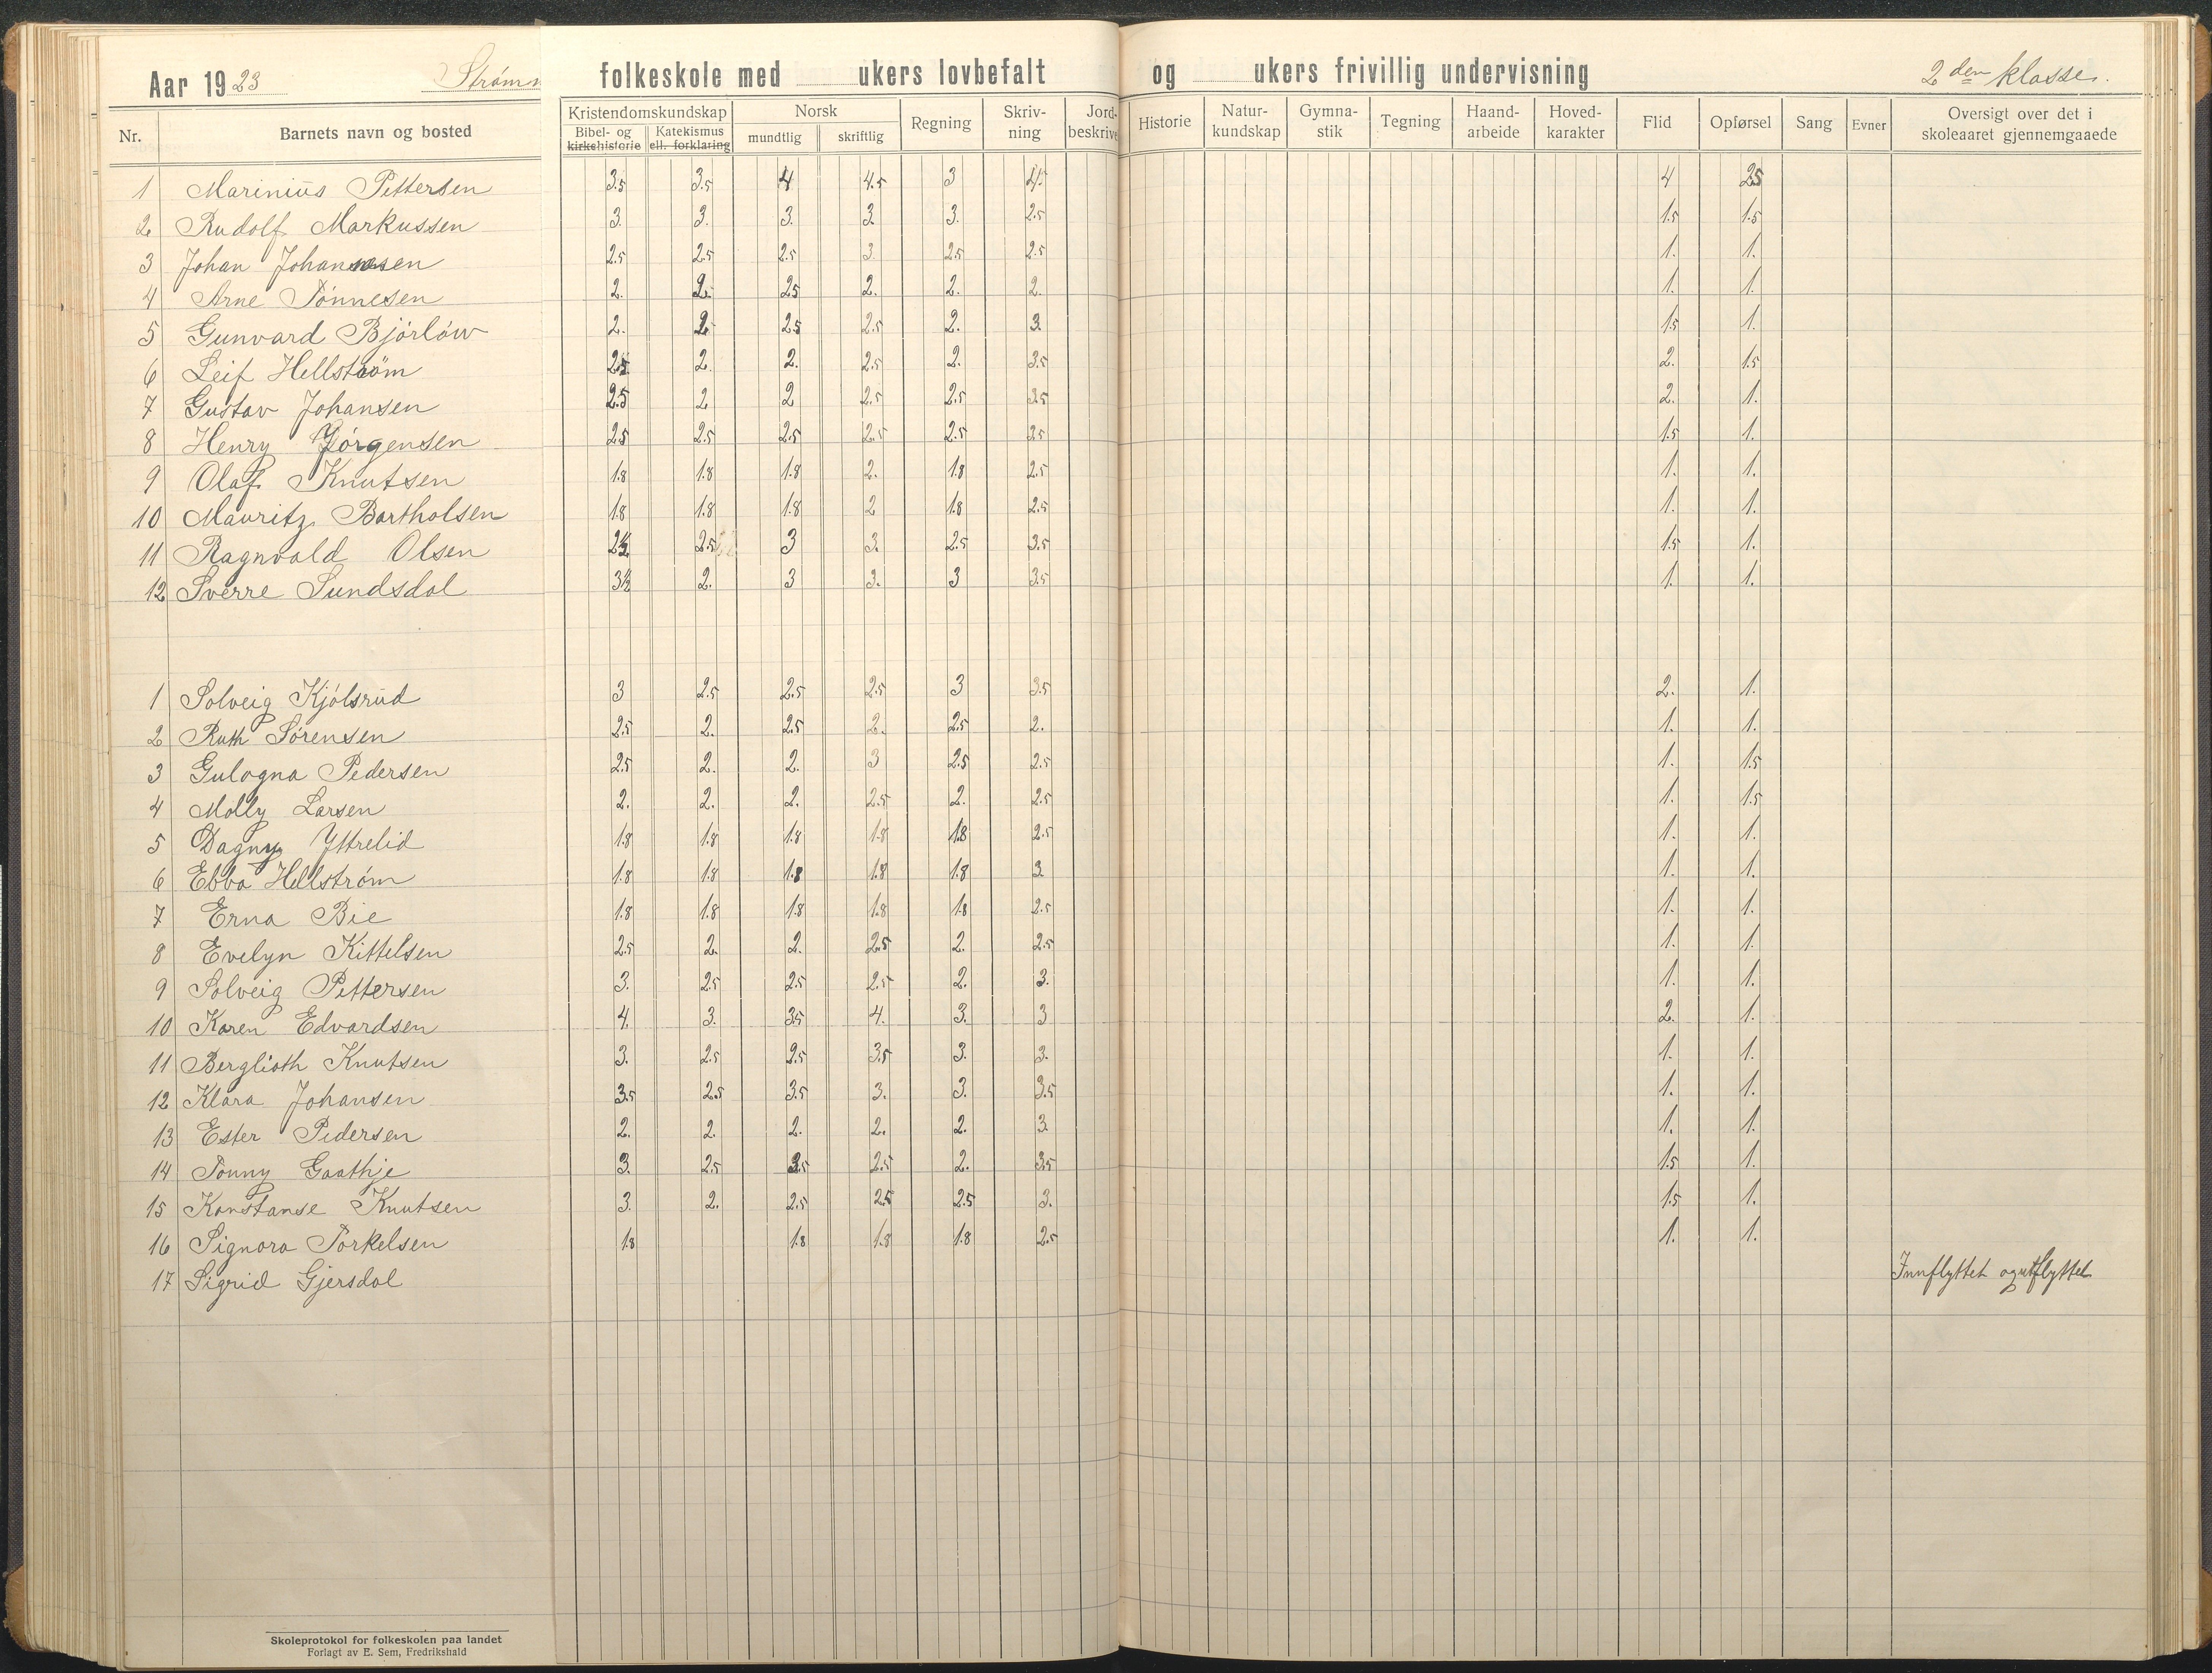 Aar 1923 Strømm folkeskole med ukers lovbefalt og ukers frivillig undervisning 2den klasse.
Nr. Barnets navn og bosted Kristendomskundskap Norsk Regning Skriv-ning Jord-beskrive Historie Natur-kundskap Gymna-stik Tegning Haand-arbeide Hoved-karakter Flid Opførsel Sang Evner Oversigt over det i skoleaaret gjennemgaaede
Bibel- og kirkehistorie Katekismus ell. forklaring mundtlig skriftlig
1 Marinius Pettersen 3.5 3.5 4 4.5 3 4.5 4 2.5
2 Rudolf Markussen 3. 3. 3. 3. 3. 2.5 1.5 1.5
3 Johan Johannesen 2.5 2.5 2.5 3. 2.5 2.5 1. 1.
4 Arne Tønnesen 2. 2. 2.5 2. 2. 2. 1. 1.
5 Gunvard Bjørløw 2. 2. 2.5 2.5 2. 3. 1.5 1.
6 Leif Hellstrøm 2.5 2. 2. 2.5 2. 3.5 2. 1.5
7 Gustav Johansen 2.5 2 2 2.5 2.5 3.5 2. 1.
8 Henry Jørgensen 2.5 2.5 2.5 2.5 2.5 3.5 1.5 1.
9 Olaf Knutsen 1.8 1.8 1.8 2. 1.8 2.5 1. 1.
10 Mauritz Bartholsen 1.8 1.8 1.8 2 1.8 2.5 1. 1.
11 Ragnvald Olsen 2½ 2.5 3 3. 2.5 3.5 1.5 1.
12 Sverre Sundsdal 3½ 2. 3 3. 3 3.5 1. 1.
1 Solveig Kjølsrud 3 2.5 2.5 2.5 3 3.5 2. 1.
2 Ruth Sørensen 2.5 2. 2.5 2. 2.5 2. 1. 1.
3 Gulogna Pedersen 2.5 2. 2. 3 2.5 2.5 1. 1.5
4 Molly Larsen 2. 2. 2. 2.5 2. 2.5 1. 1.5
5 Dagny Yttrelid 1.8 1.8 1.8 1.8 1.8 2.5 1. 1.
6 Ebba Hellstrøm 1.8 1.8 1.8 1.8 1.8 3 1. 1.
7 Erna Bie 1.8 1.8 1.8 1.8 1.8 2.5 1. 1.
8 Evelyn Kittelsen 2.5 2. 2. 2.5 2. 2.5 1. 1.
9 Solveig Pettersen 3. 2.5 2.5 2.5 2. 3. 1. 1.
10 Karen Edvardsen 4. 3. 3.5 4. 3. 3 2. 1.
11 Berglioth Knutsen 3. 2.5 2.5 3.5 3. 3. 1. 1.
12 Klara Johansen 3.5 2.5 3.5 3. 3. 3.5 1. 1.
13 Ester Pedersen 2. 2. 2. 2. 2. 3. 1. 1.
14 Tonny Gaathje 3. 2.5 2.5 2.5 2. 3.5 1.5 1.
15 Konstanse Knutsen 3. 2. 2.5 2.5 2.5 3. 1.5 1.
16 Signora Torkelsen 1.8 1.8 1.8 1.8 2.5 1. 1.
17 Sigrid Gjersdal Innflyttet og utflyttet
Skoleprotokol for folkeskolen paa landet
Forlagt av E. Sem, Fredrikshald